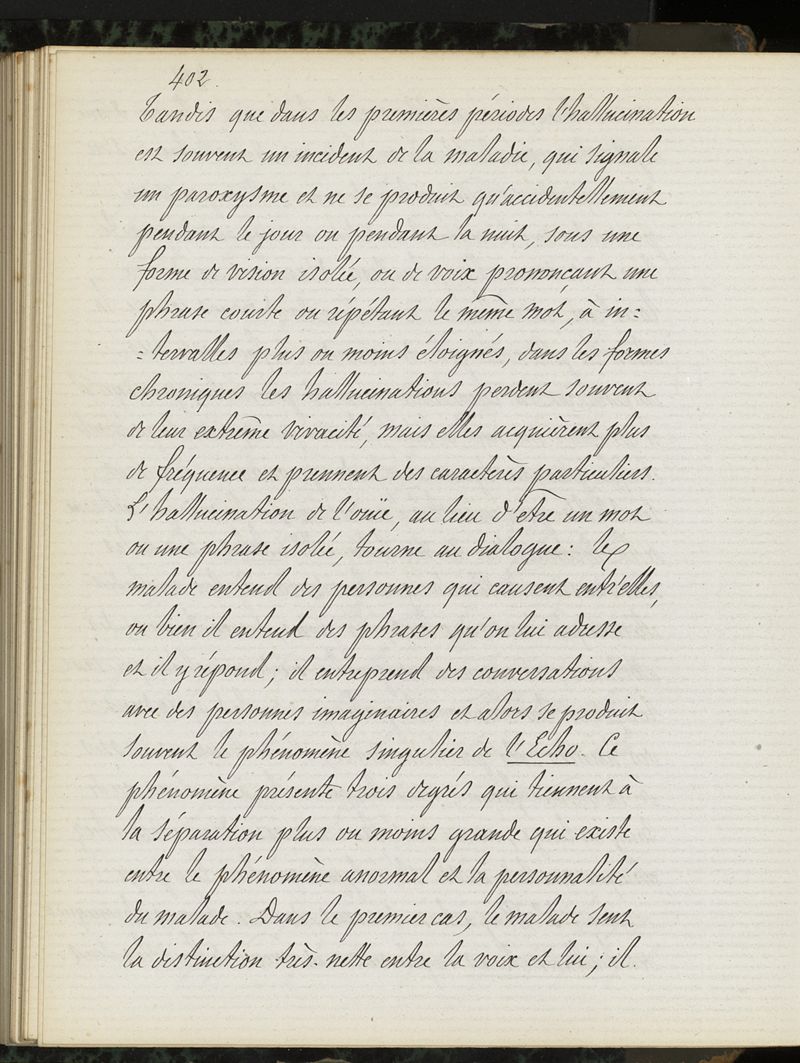 402.
Tandis que dans les premières périodes l'hallucination
est souvent un incident de la maladie, qui signale
un paroxysme et ne se produit qu'accidentellement
pendant le jour ou pendant la nuit, sous une
forme de vision isolée, ou de voix prononçant une
phrase courte ou répétant le même mot, à in=
=tervalles plus ou moins éloignés, dans les formes
chroniques les hallucinations perdent souvent
de leur extrême vivacité, mais elles acquièrent plus
de fréquence et prennent des caractères particuliers.
L'hallucination de l'ouïe, au lieu d'être un mot
ou une phrase isolée, tourne au dialogue: le
malade entend des personnes qui causent entr'elles,
ou bien il entend des phrases qu'on lui adresse
et il y répond; il entreprend des conversations
avec des personnes imaginaires et alors se produit
souvent le phénomène singulier de l'Echo. Ce
phénomène présente trois degrés qui tiennent à
la séparation plus ou moins grande qui existe
entre le phénomène anormal et la personnalité
du malade. Dans le premier cas, le malade sent
la distinction très-nette entre la voix et lui; il